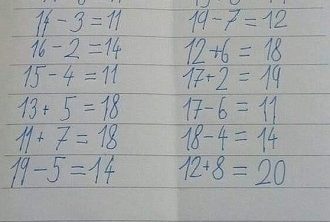 14 - 3 = 11
16 - 2 = 14
15 - 4 = 11
13 + 5 = 18
11 + 7 = 18
19 - 5 = 14
19 - 7 = 12
12 + 6 = 18
17 + 2 = 19
17 - 6 = 11
18 - 4 = 14
12 + 8 = 20